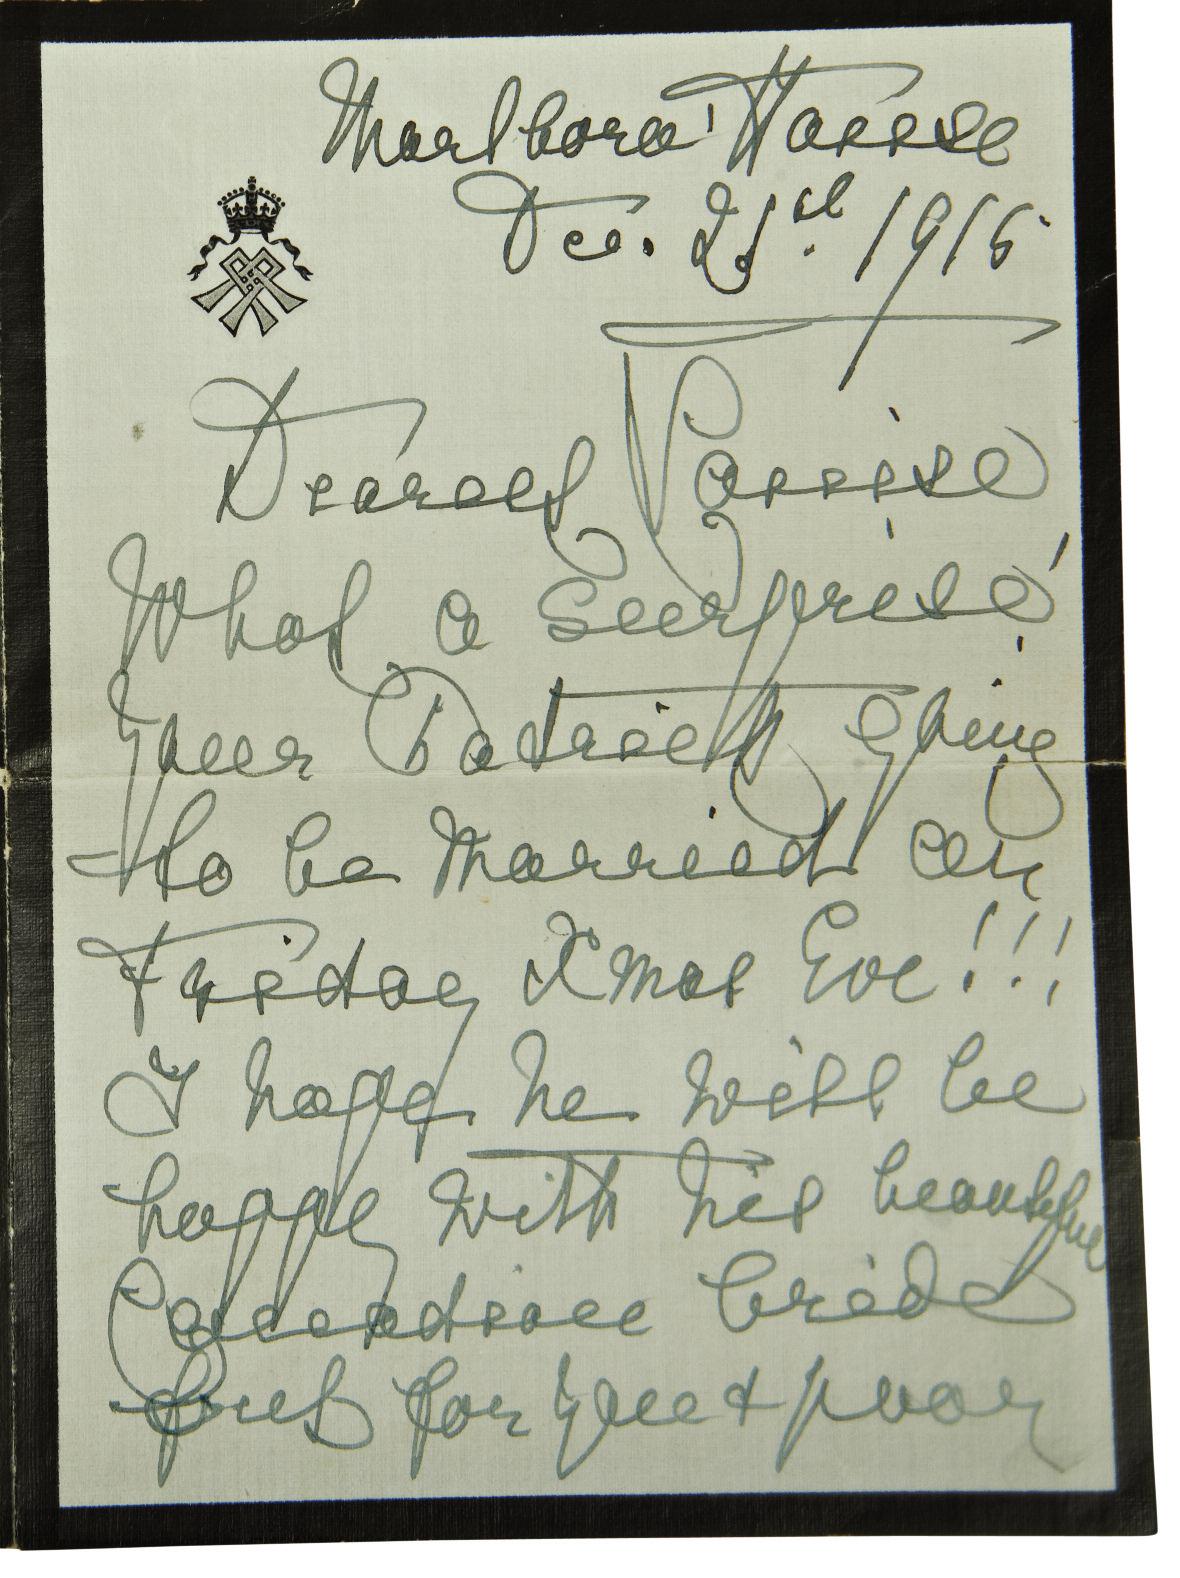 Marlboro' House
Dec. 21st. 1915
Dearest Louise
What a surprise!
Your Patrick going
to be married on
Friday Xmas Eve!!!
I hope he will be
happy with his beautiful
Canadian bride
but for you & poor